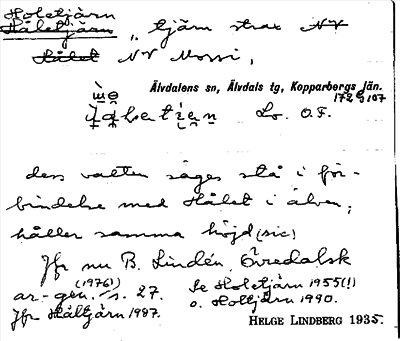 Holetjärn
Håletjärn, tjärn strax NV
Hålet NV Morri,
Älvdalens sn, Älvdals tg, Kopparbergs län.
172 107
Lv. O.F.
dess vatten säges stå i för-
bindelse med Hålet i älven;
håller samma höjd (sic)
Jfr nu B. Lindén Övredalsk
ar-gen. (1976) s. 27. Se Holetjärn 1955 (!)
Jfr Håltjärn 1987. o. Holtjärn 1990.
HELGE LINDBERG 1935.